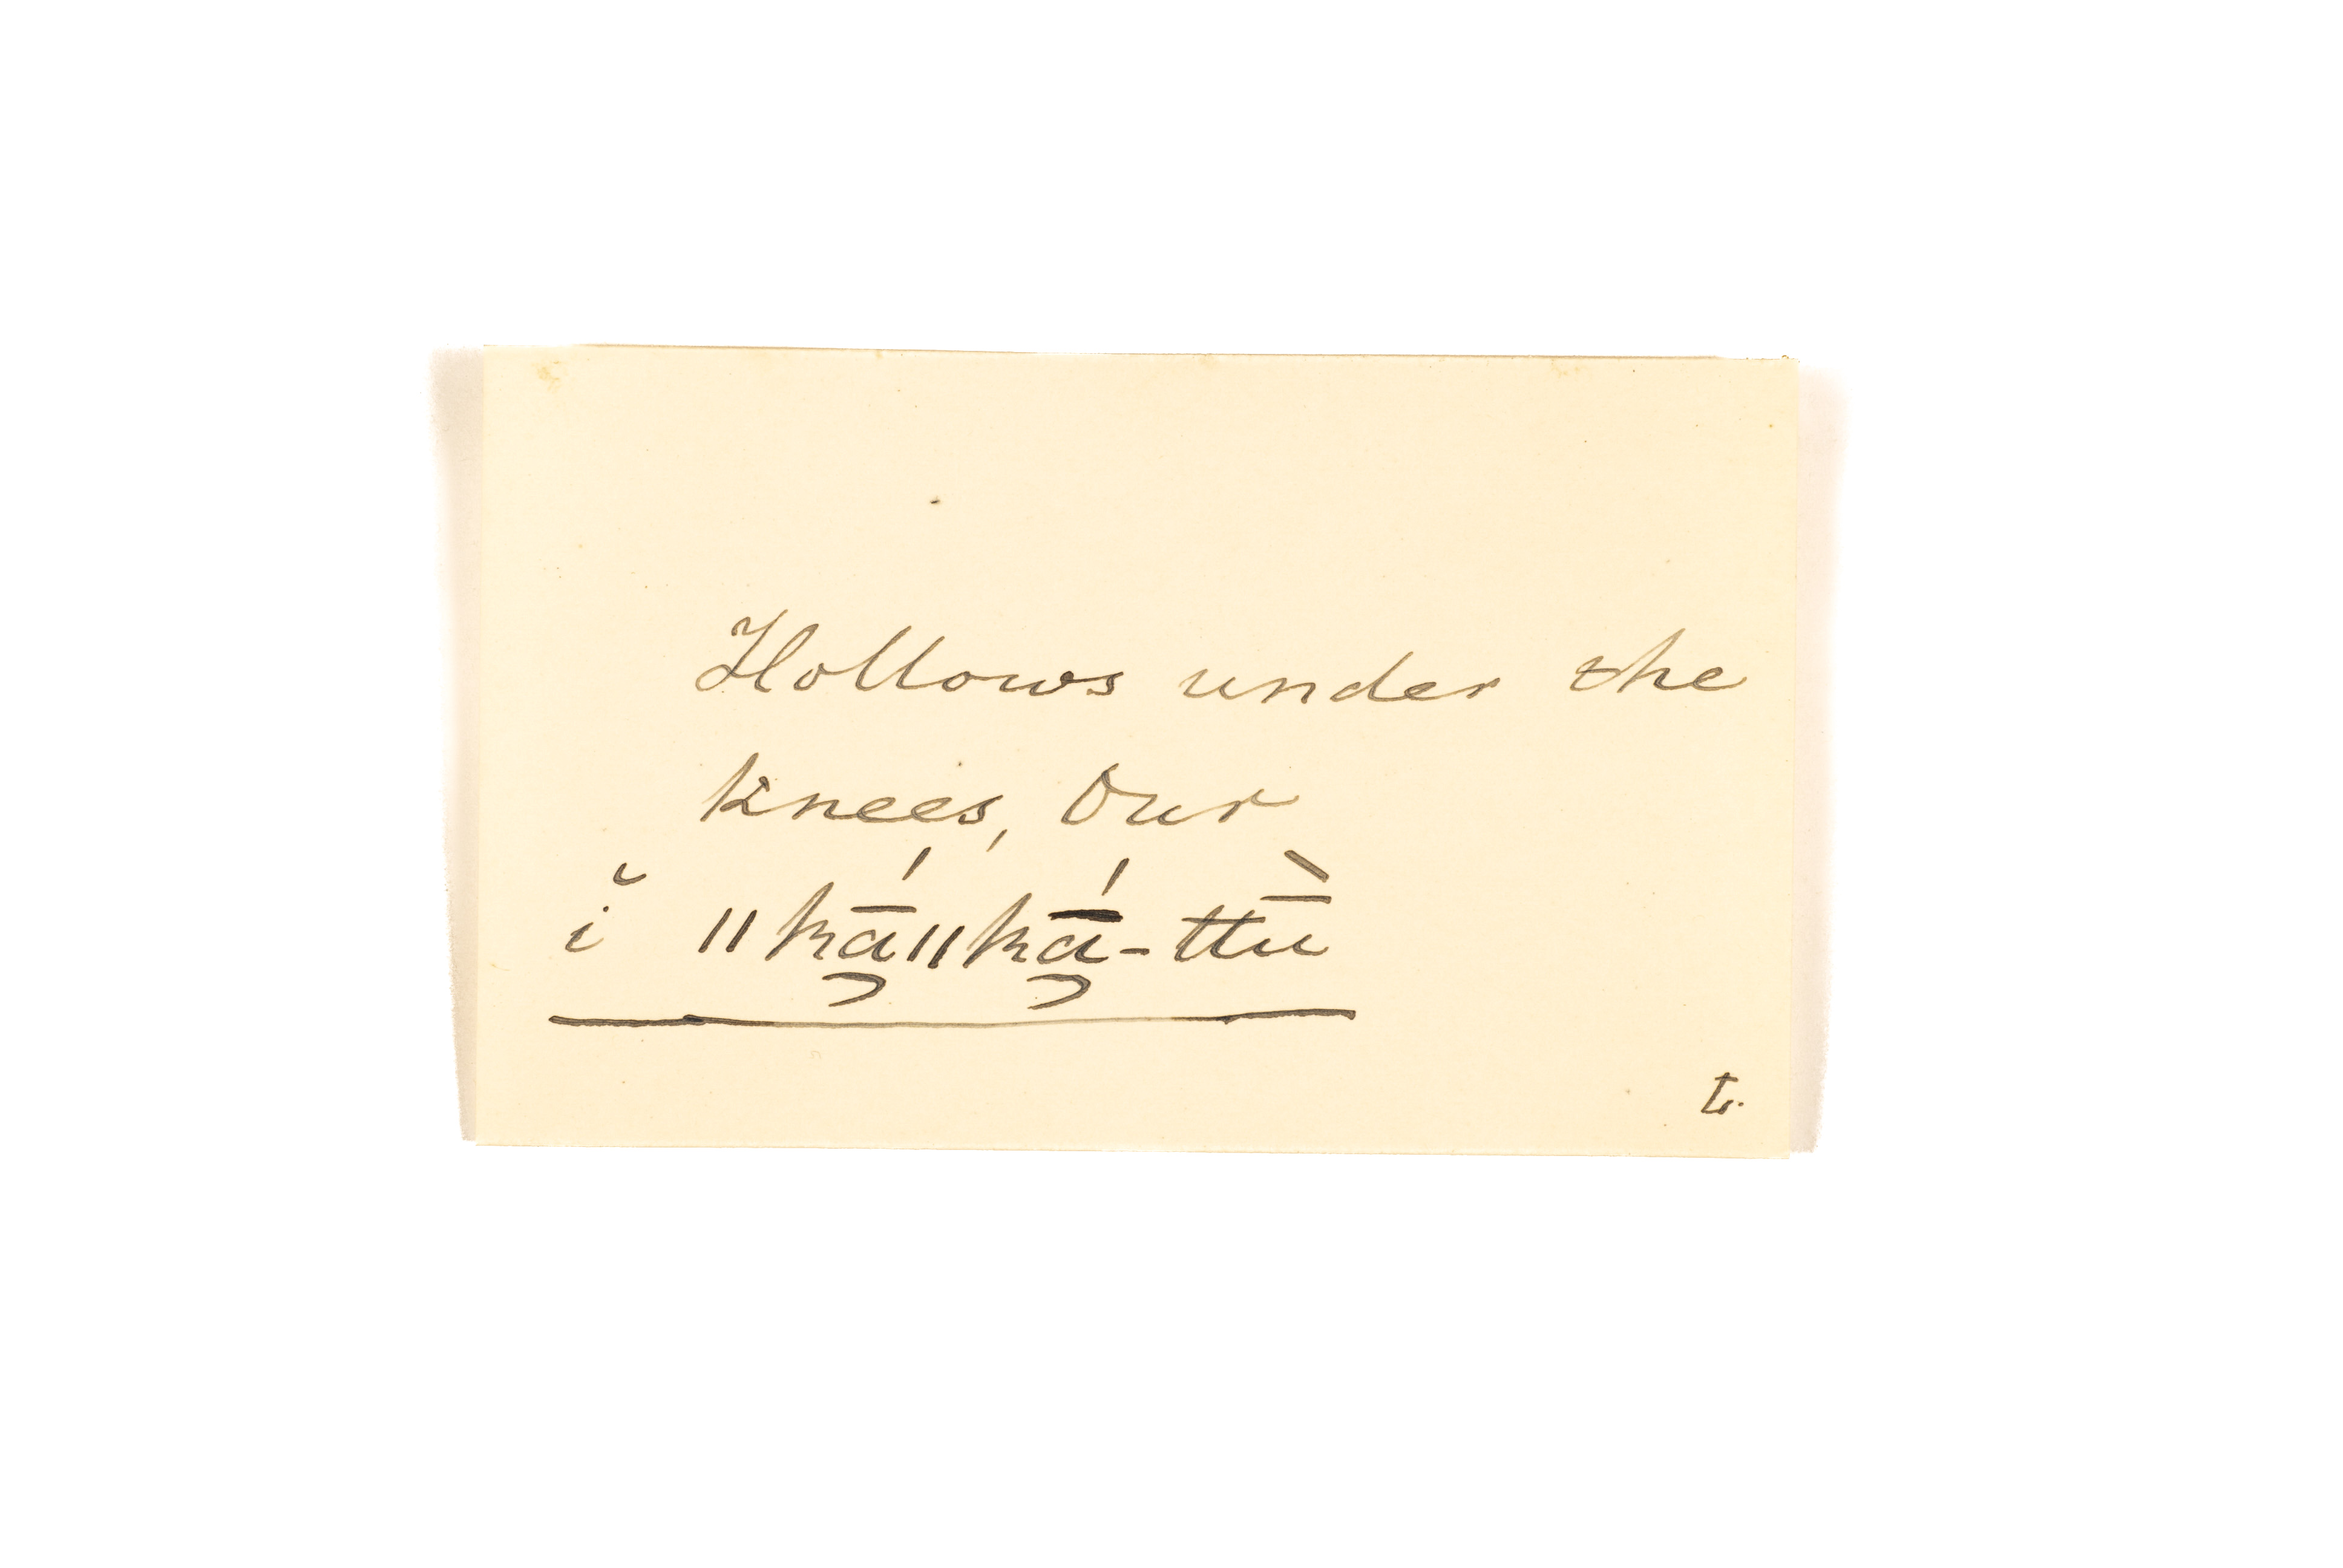 Hollows under the
knees, Our
ĭ ǁkā̡́ǁkā̡́-ttū̀
L.